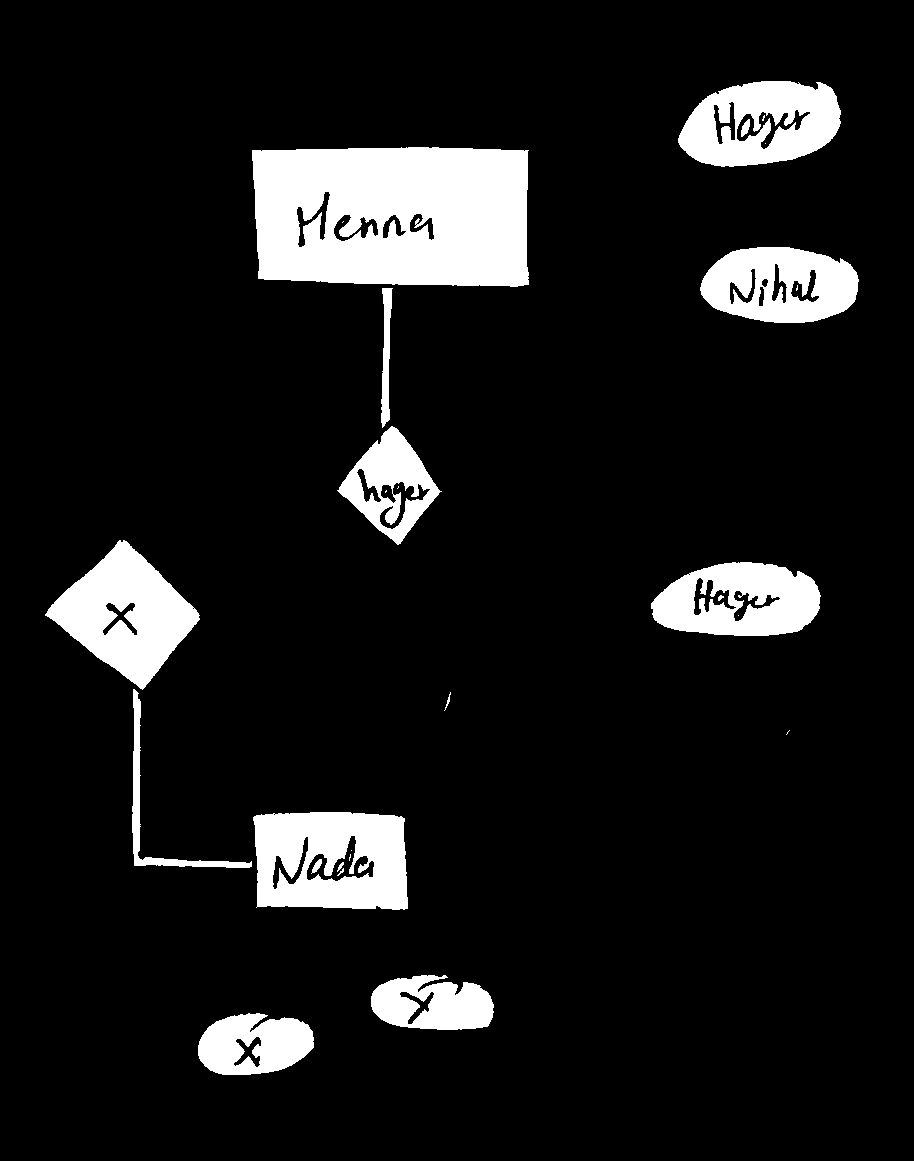 Hager
Menna
Nihal
hager
X
Hager
Nada
Y
X